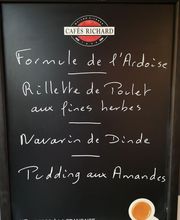 CAFÉS RICHARD
Formule de l'Ardoise
Rillette de Poulet
aux fines herbes
Navarin de Dinde
Pudding aux Amandes